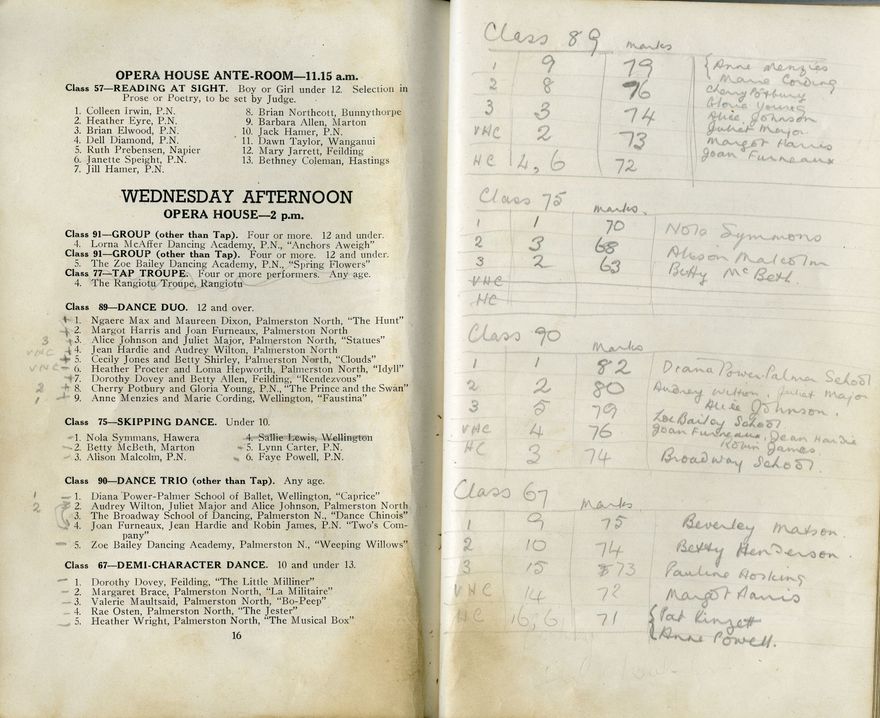 OPERA HOUSE ANTE-ROOM—11.15 a.m.
Class 57—READING AT SIGHT. Boy or Girl under 12. Selection in
Prose or Poetry, to be set by Judge.
1. Colleen Irwin, P.N.
2. Heather Eyre, P.N.
3. Brian Elwood, P.N.
4. Dell Diamond, P.N.
5. Ruth Prebensen, Napier
6. Janette Speight, P.N.
7. Jill Hamer, P.N.
8. Brian Northcott, Bunnythorpe
9. Barbara Allen, Marton
10. Jack Hamer, P.N.
11. Dawn Taylor, Wanganui
12. Mary Jarrett, Feilding
13. Bethney Coleman, Hastings
WEDNESDAY AFTERNOON
OPERA HOUSE—2 p.m.
Class 91—GROUP (other than Tap). Four or more. 12 and under.
4. Lorna McAffer Dancing Academy, P.N., "Anchors Aweigh"
Class 91—GROUP (other than Tap). Four or more. 12 and under.
5. The Zoe Bailey Dancing Academy, P.N., "Spring Flowers"
Class 77—TAP TROUPE. Four or more performers. Any age.
4. The Rangiotu Troupe, Rangiotu
Class 89—DANCE DUO. 12 and over.
1. Ngaere Max and Maureen Dixon, Palmerston North, "The Hunt"
2. Margot Harris and Joan Furneaux, Palmerston North
3 3. Alice Johnson and Juliet Major, Palmerston North, "Statues"
VHC 4. Jean Hardie and Audrey Wilton, Palmerston North
5. Cecily Jones and Betty Shirley, Palmerston North, "Clouds"
VHC 6. Heather Procter and Loma Hepworth, Palmerston North, "Idyll"
7. Dorothy Dovey and Betty Allen, Feilding, "Rendezvous"
2 8. Cherry Potbury and Gloria Young, P.N., "The Prince and the Swan"
1 9. Anne Menzies and Marie Cording, Wellington, "Faustina"
Class 75—SKIPPING DANCE. Under 10.
1. Nola Symmans, Hawera
2. Betty McBeth, Marton
3. Alison Malcolm, P.N.
4. Sallie Lewis, Wellington
5. Lynn Carter, P.N.
6. Faye Powell, P.N.
Class 90—DANCE TRIO (other than Tap). Any age.
1 1. Diana Power-Palmer School of Ballet, Wellington, "Caprice"
2 2. Audrey Wilton, Juliet Major and Alice Johnson, Palmerston North
3. The Broadway School of Dancing, Palmerston N., "Dance Chinois"
4. Joan Furneaux, Jean Hardie and Robin James, P.N. "Two's Com-
pany"
5. Zoe Bailey Dancing Academy, Palmerston N., "Weeping Willows"
Class 67—DEMI-CHARACTER DANCE. 10 and under 13.
1. Dorothy Dovey, Feilding, "The Little Milliner"
2. Margaret Brace, Palmerston North, "La Militaire"
3. Valerie Maultsaid, Palmerston North, "Bo-Peep"
4. Rae Osten, Palmerston North, "The Jester"
5. Heather Wright, Palmerston North, "The Musical Box"
16
Class 89 marks
1 9 79 Anne Menzies
Marie Cording
2 8 76 Cherry Potbury
Gloria Young
3 3 74 Alice Johnson
Juliet Major
VHC 2 73 Margot Harris
Joan Furneaux
HC 4, 6 72
Class 75 marks.
1 1 70 Nola Symmons
2 3 68 Alison Malcolm
3 2 63 Betty McBeth.
VHC
HC
Class 90 Marks
1 1 82 Diana Power Palmer School
2 2 80 Audrey Wilton, Juliet Major
Alice Johnson.
3 5 79 Zoe Bailey School
VHC 4 76 Joan Furneaux, Jean Hardie
Robin James
HC 3 74 Broadway School.
Class 67 Marks
1 9 75 Beverley Matson.
2 10 74 Betty Henderson.
3 15 73 Pauline Hosking
VHC 14 72 Margot Harris
HC 16, 6 71 Pat
Anne Powell.